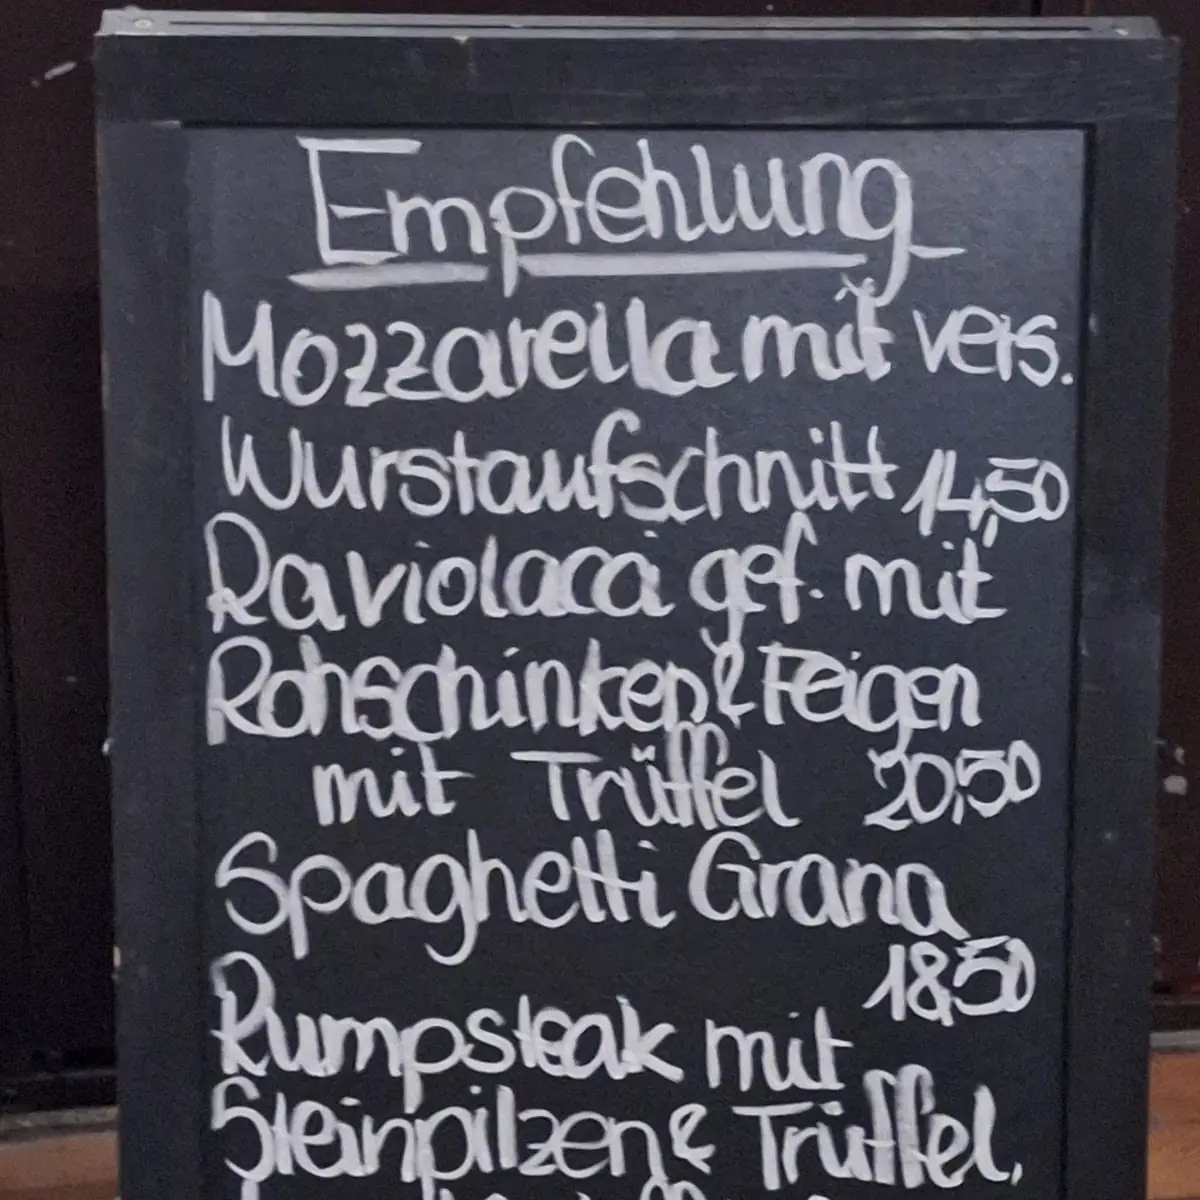 Empfehlung
Mozzarella mit vers.
Wurstaufschnitt 14,50
Raviolacci gef. mit
Rohschinken & Feigen
mit Trüffel 20,50
Spaghetti Grana
18,50
Rumpsteak mit
Steinpilzen & Trüffel,